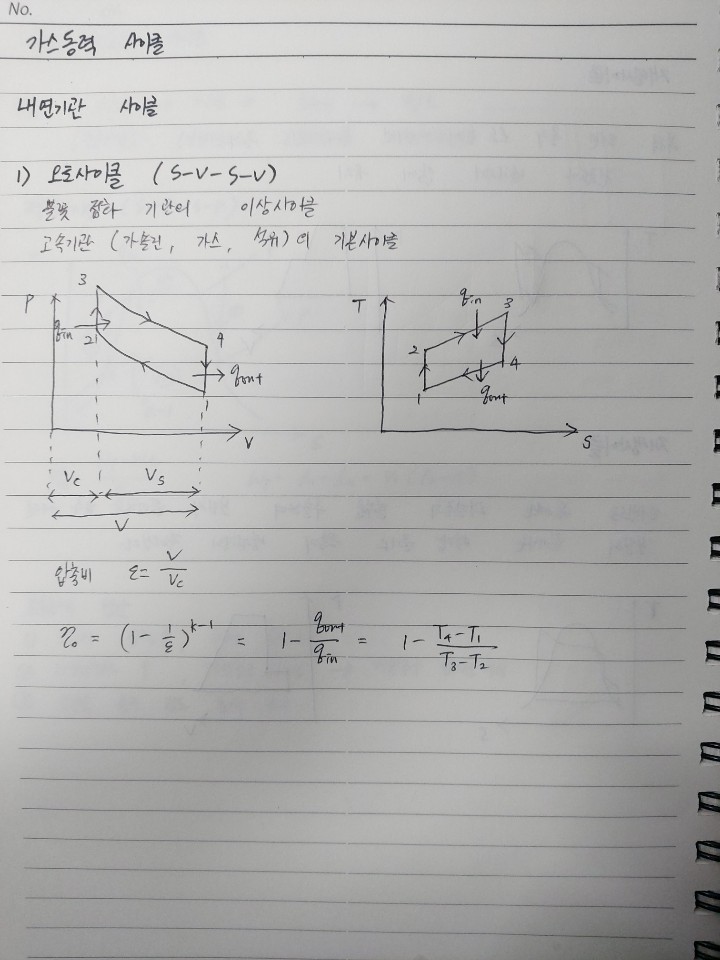 No.
가스동력 사이클
내연기관 사이클
1) 오토사이클 (S-V-S-V)
불꽃 점화 기관의 이상사이클
고속기관 (가솔린, 가스, 석유)의 기본사이클
P 3 qin 2 4 qout 1 V
T qin 3 2 4 1 qout S
Vc Vs
V
압축비 ε = V/Vc
η₀ = (1 - 1/ε)^(k-1) = 1 - qout/qin = 1 - (T₄-T₁)/(T₃-T₂)